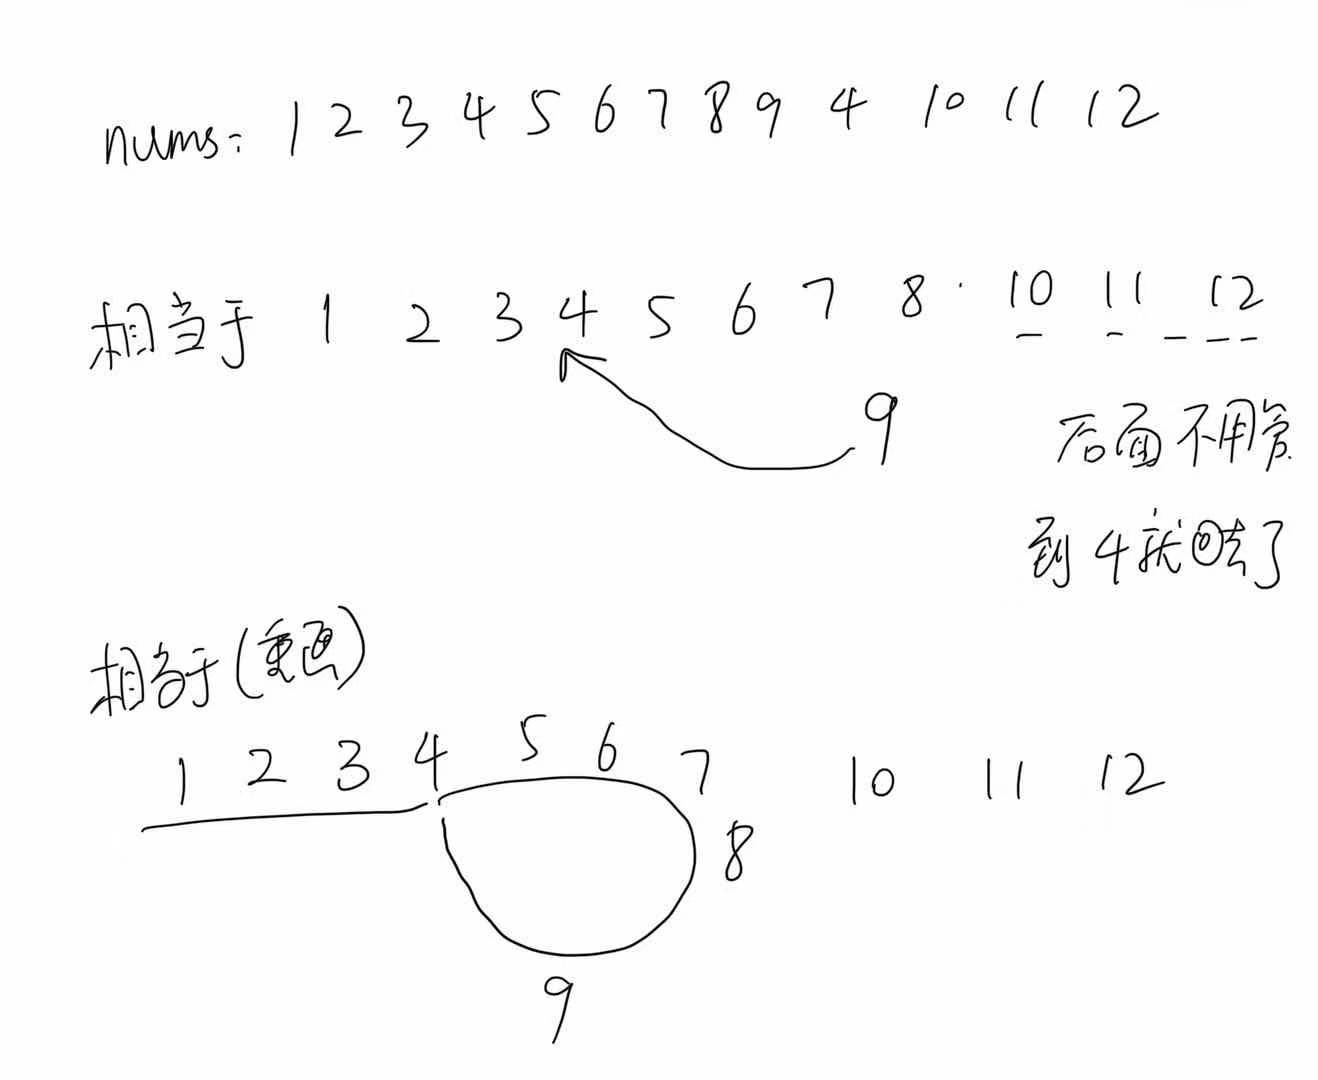 nums: 1 2 3 4 5 6 7 8 9 4 10 11 12
相当于 1 2 3 4 5 6 7 8 10 11 12
9
后面不用管
到4就回去了
相当于(重画)
1 2 3 4 5 6 7 10 11 12
8
9